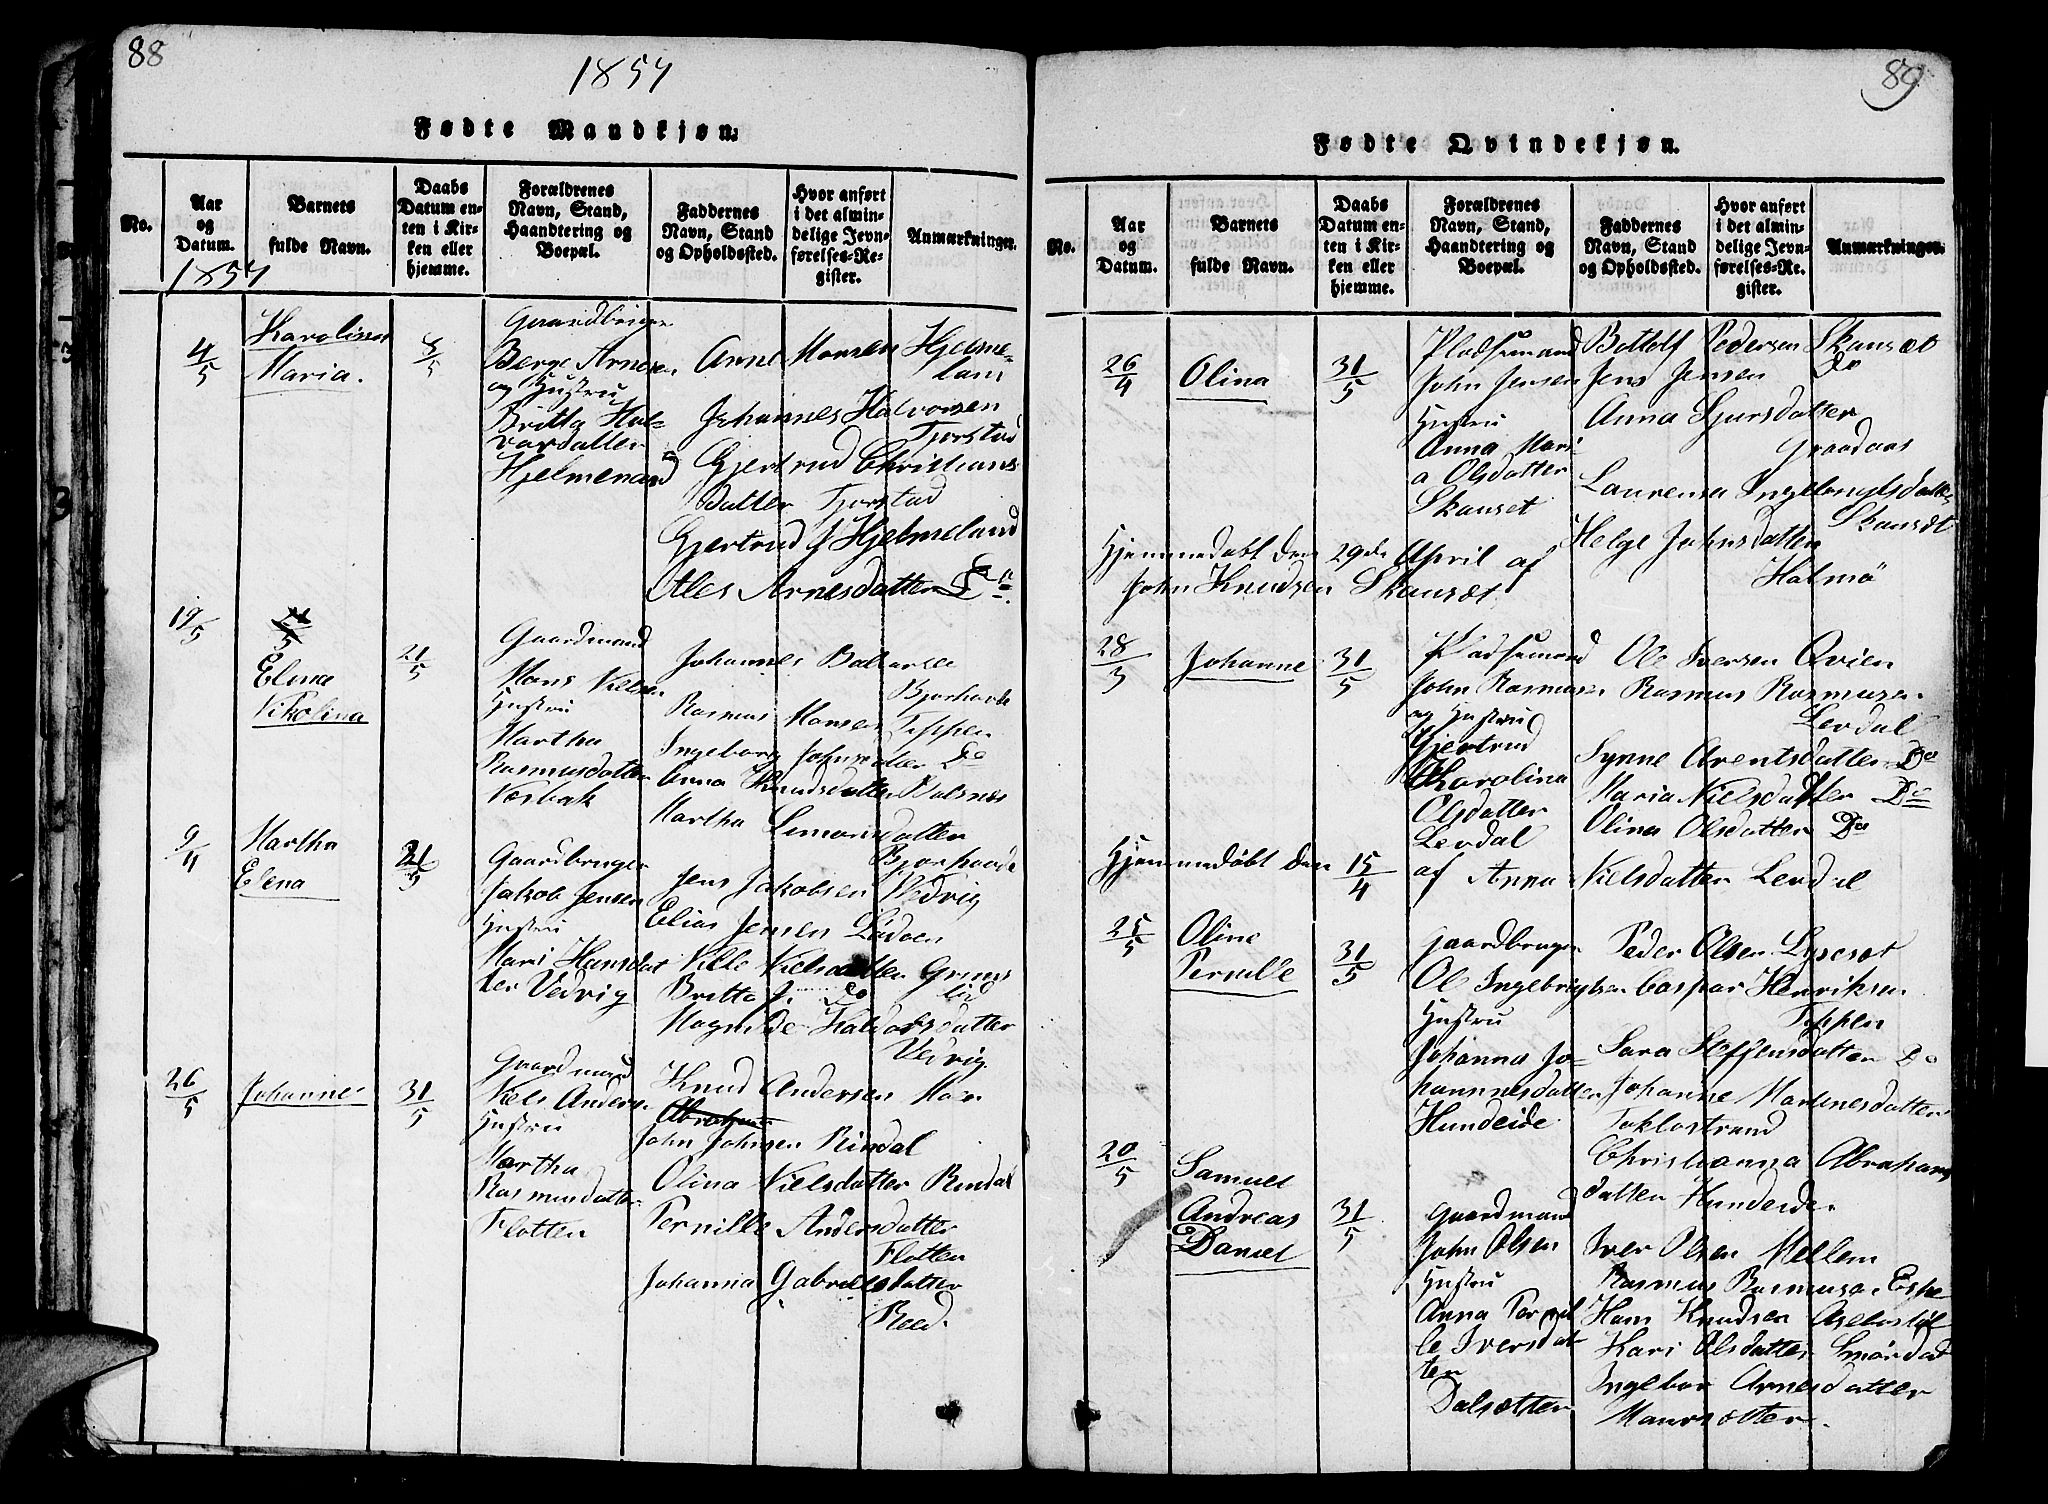 88
1857
Fødte Mandkjøn.
No.
Aar og Datum.
Barnets fulde Navn.
Daabs Datum enten i Kirken eller hjemme.
Forældrenes Navn, Stand, Haandtering og Boepæl.
Faddernes Navn, Stand og Opholdssted.
Hvor anført i det almindelige Jevnførelses-Register.
Anmærkninger.
1857
4/5
Karolina
Maria.
Gaardbruger
Berge Arnesen
og Hustru
Britta Hal-
vardatter
Anne Monsen Hjelme-
land
Johannes Halvorsen
Tjorstad
Gjertrud Christians
datter Tjorstad
Gjertrud J Hjelmeland
Arnesdatter Do
19/5
Elena
Nikolina
21/5
Gaardmand
Mons Nielsen
Hustru
Martha
Rasmusdatter
Næsbak
Johannes
Rasmus Hansen Teppen
Ingeborg Johnsdatter Do
Anna Knudsdatter
Martha Simonsdatter
9/4
Martha
Elena
21/5
Gaardbruger
Jakob Jensen
Hustru
Mari Hansdat
ter Vedvig
Jens Jakobsen Vedvig
Elias Jensen
Nille Nielsdatter
Britta J. Do
Magnilde Haldorsdatter
Vedvig.
26/5
Johannes
31/5
Gaardmand
Niels Anders.
Hustru
Martha
Rasmusdatter
Flotten
Knud Andersen Moen
John Johnsen Rindal
Olina Nielsdatter Rindal
Pernille Andersdatter
Flotten
Johanna Gabrielsdatter
Reed.
89
Fødte Qvindekjøn.
No.
Aar og Datum.
Barnets fulde Navn.
Daabs Datum enten i Kirken eller hjemme.
Forældrenes Navn, Stand, Haandtering og Boepæl.
Faddernes Navn, Stand og Opholdssted.
Hvor anført i det almindelige Jevnførelses-Register.
Anmærkninger.
26/4
Olina
31/5
Pladsemand
John Jensen
Hustru
Anna Mari
a Olsdatter
Skanset
Bottolf Pedersen Skanset
Jens Jensen Do
Anna Sjursdatter
Laurensa
Skanset
Helge Johnsdatter
Halmø
Hjemmedøbt den 29de April af
John Knudsen Skanset
28/3
Johanne
31/5
Pladsemand
John Rasmusen
og Hustru
Gjertrud
Karolina
Olsdatter
Lerdal
Ole Iversen Qvien
Rasmus Rasmusen
Lerdal
Synne Arentsdatter Do
Maria Nielsdatter Do
Olina Olsdatter Do
Hjemmedøbt den 15/4 af Anna Nielsdatter Lerdal
25/5
Oline
Pernille
31/5
Gaardbruger
Ol Ingebrigtsen
Hustru
Johanna Jo-
hannesdatter
Hundeide
Peder Olsen
Caspar Henriksen
Teppen
Sara Steffensdatter Do
Johanne Martinesdatter
Toklestrand
Christianna Abrahams
datter Hundeide
20/5
Samuel
Andreas
Daniel
31/5
Gaardmand
John Olsen
Hustru
Anna Pernil
le Iversdat
ter
Dalsætter
Iver Olsen Mellem
Rasmus Rasmusen Espe
Hans Knudsen
Kari Olsdatter Smørdal
Ingebor Arnesdatter
Maursætter.